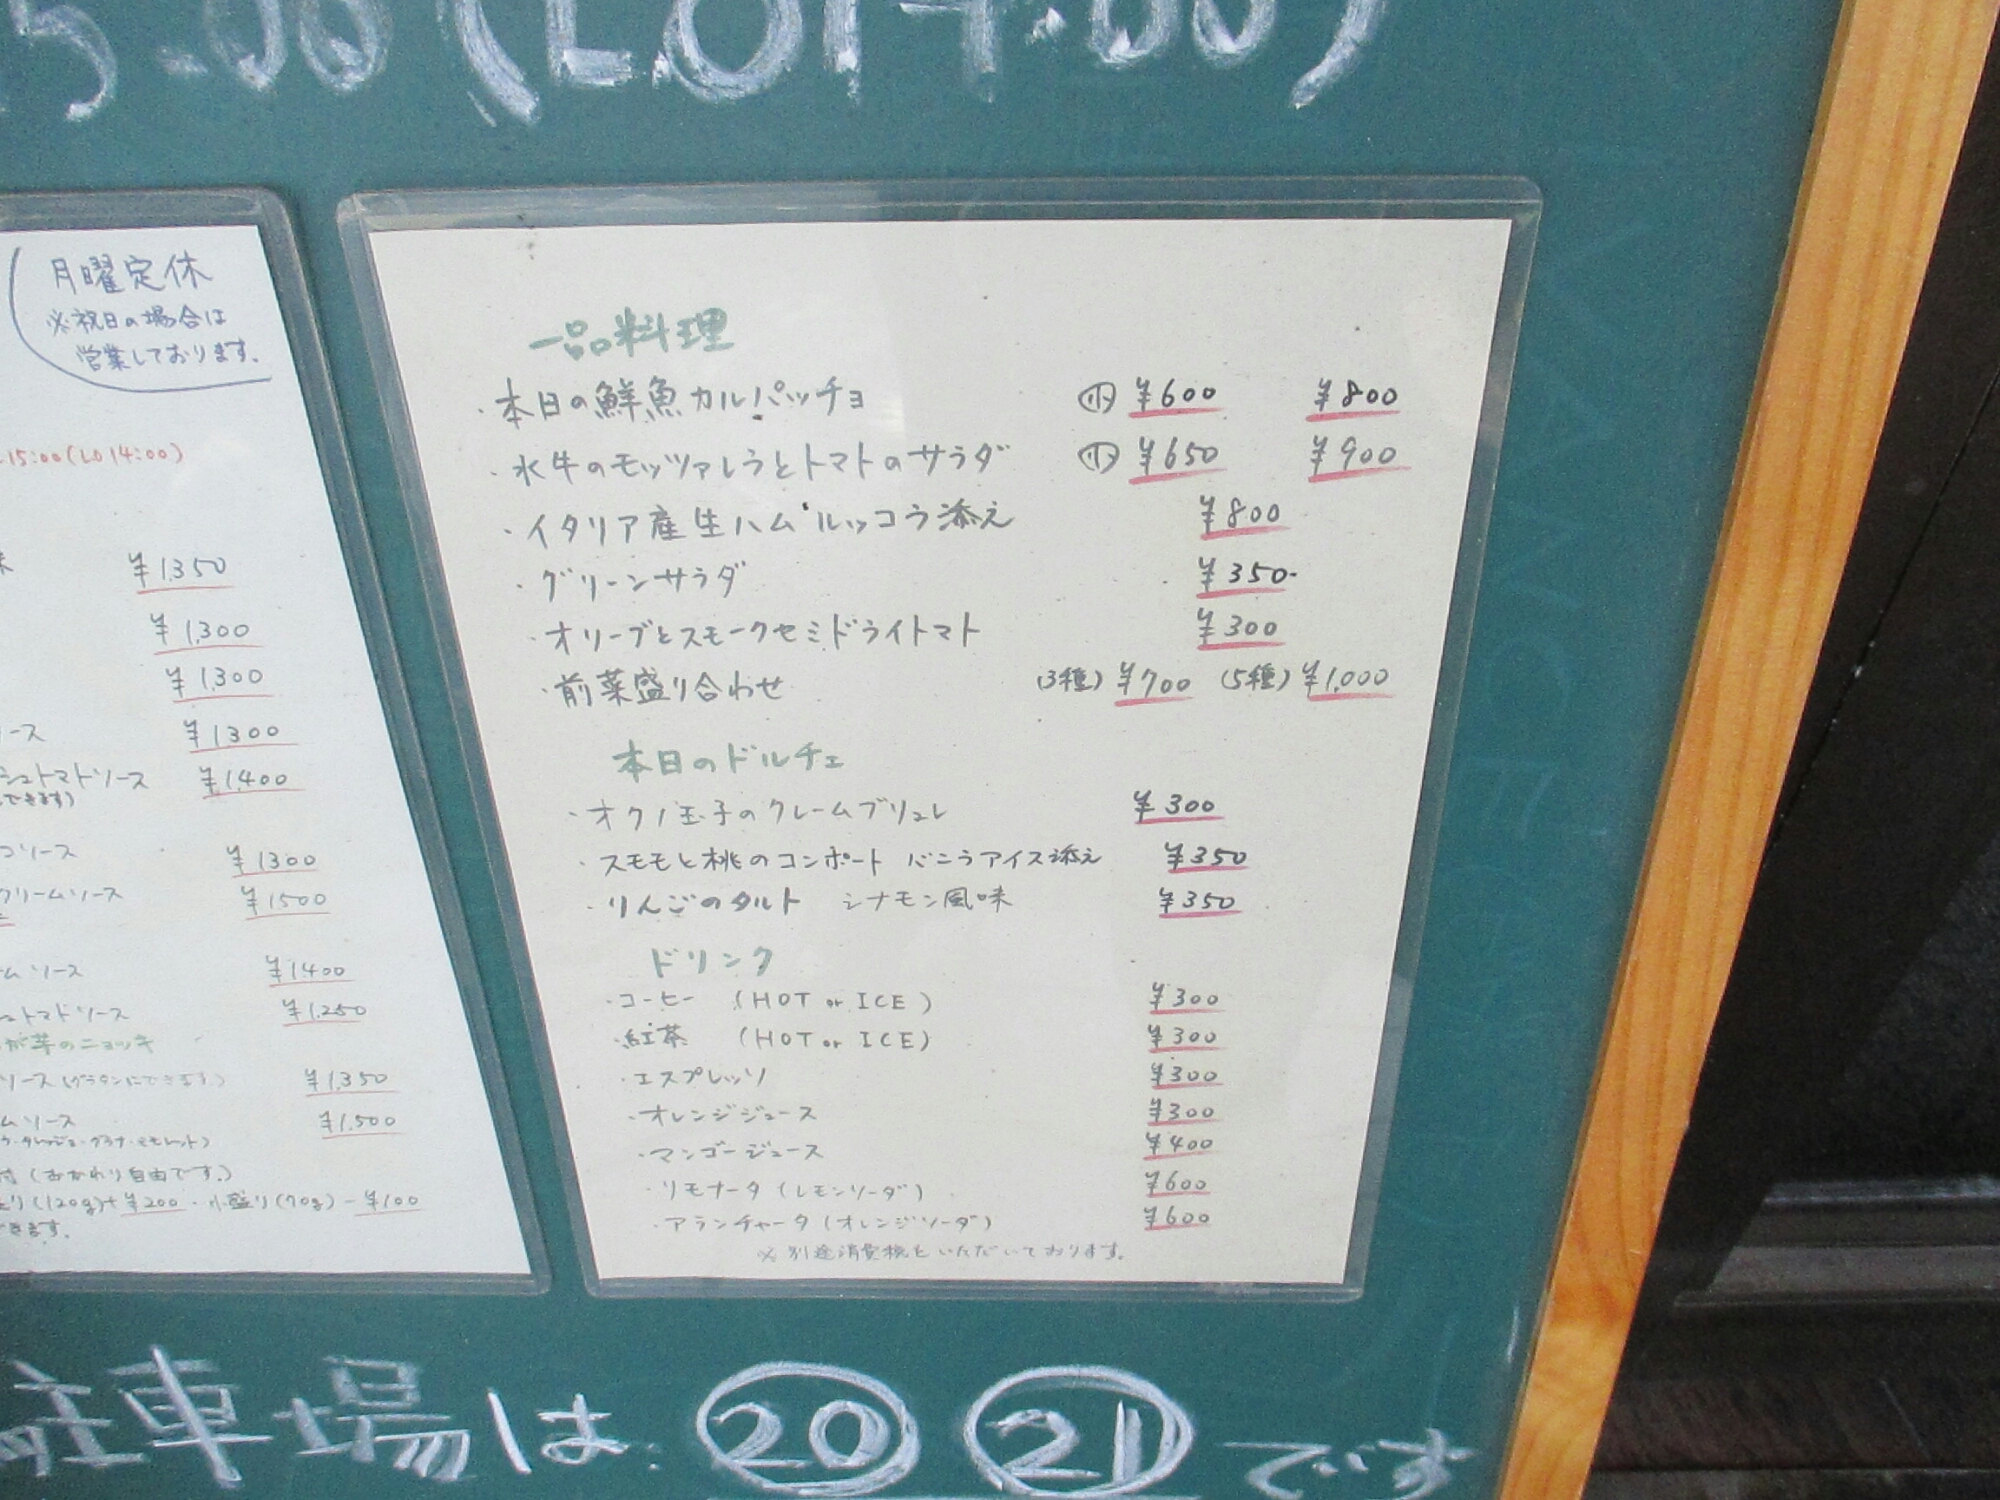 5:00 (LO14:00)
月曜定休
※祝日の場合は
営業しております。
15:00(LO 14:00)
味 ¥1,350
¥1,300
¥1,300
ース ¥1300
シュトマトソース ¥1,400
できます)
コソース ¥1300
クリームソース ¥1500
ームソース ¥1400
ュトマトソース ¥1,250
が芋のニョッキ
ソース(グラタンにできます。) ¥1,350
ムソース ¥1,500
付(おかわり自由です。)
り(120g)+¥200・小盛り(70g)-¥100
できます。
一品料理
・本日の鮮魚カルパッチョ 小 ¥600 ¥800
・水牛のモッツァレラとトマトのサラダ 小 ¥650 ¥900
・イタリア産生ハム ルッコラ添え ¥800
・グリーンサラダ ¥350-
・オリーブとスモークセミドライトマト ¥300
・前菜盛り合わせ (3種)¥700 (5種)¥1,000
本日のドルチェ
・オクノ玉子のクレームブリュレ ¥300
・スモモと桃のコンポート バニラアイス添え ¥350
・りんごのタルト シナモン風味 ¥350
ドリンク
・コーヒー (HOT or ICE) ¥300
・紅茶 (HOT or ICE) ¥300
・エスプレッソ ¥300
・オレンジジュース ¥300
・マンゴージュース ¥400
・リモナータ(レモンソーダ) ¥600
・アランチャータ(オレンジソーダ) ¥600
※別途消費税をいただいております。
駐車場は ⑳ ㉑ です